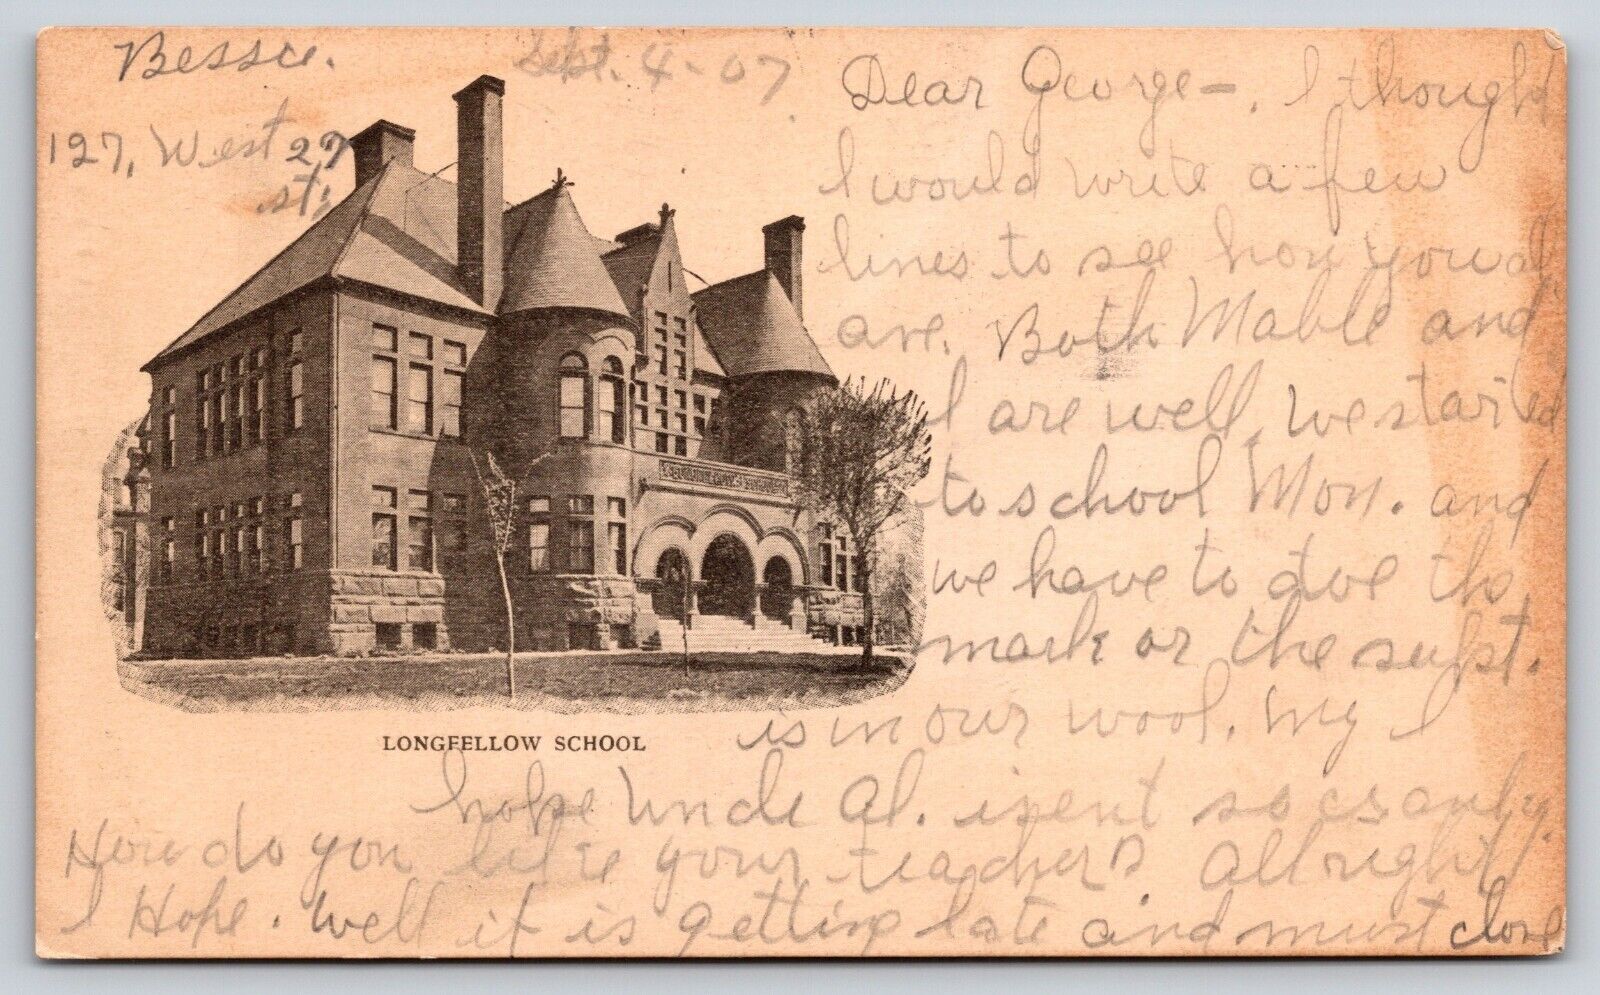 Bessie.
Sept. 4-07
127, West 27
st;
Dear George-, I thought
I would write a few
lines to see how you al
are. Both Mable and
I are well, we started
to school Mon. and
we have to doe the
mark or the supt.
is in our wool. My I
hope Uncle Al. isent so
How do you like your teachers allright
I Hope. Well it is getting late and must close
LONGFELLOW SCHOOL